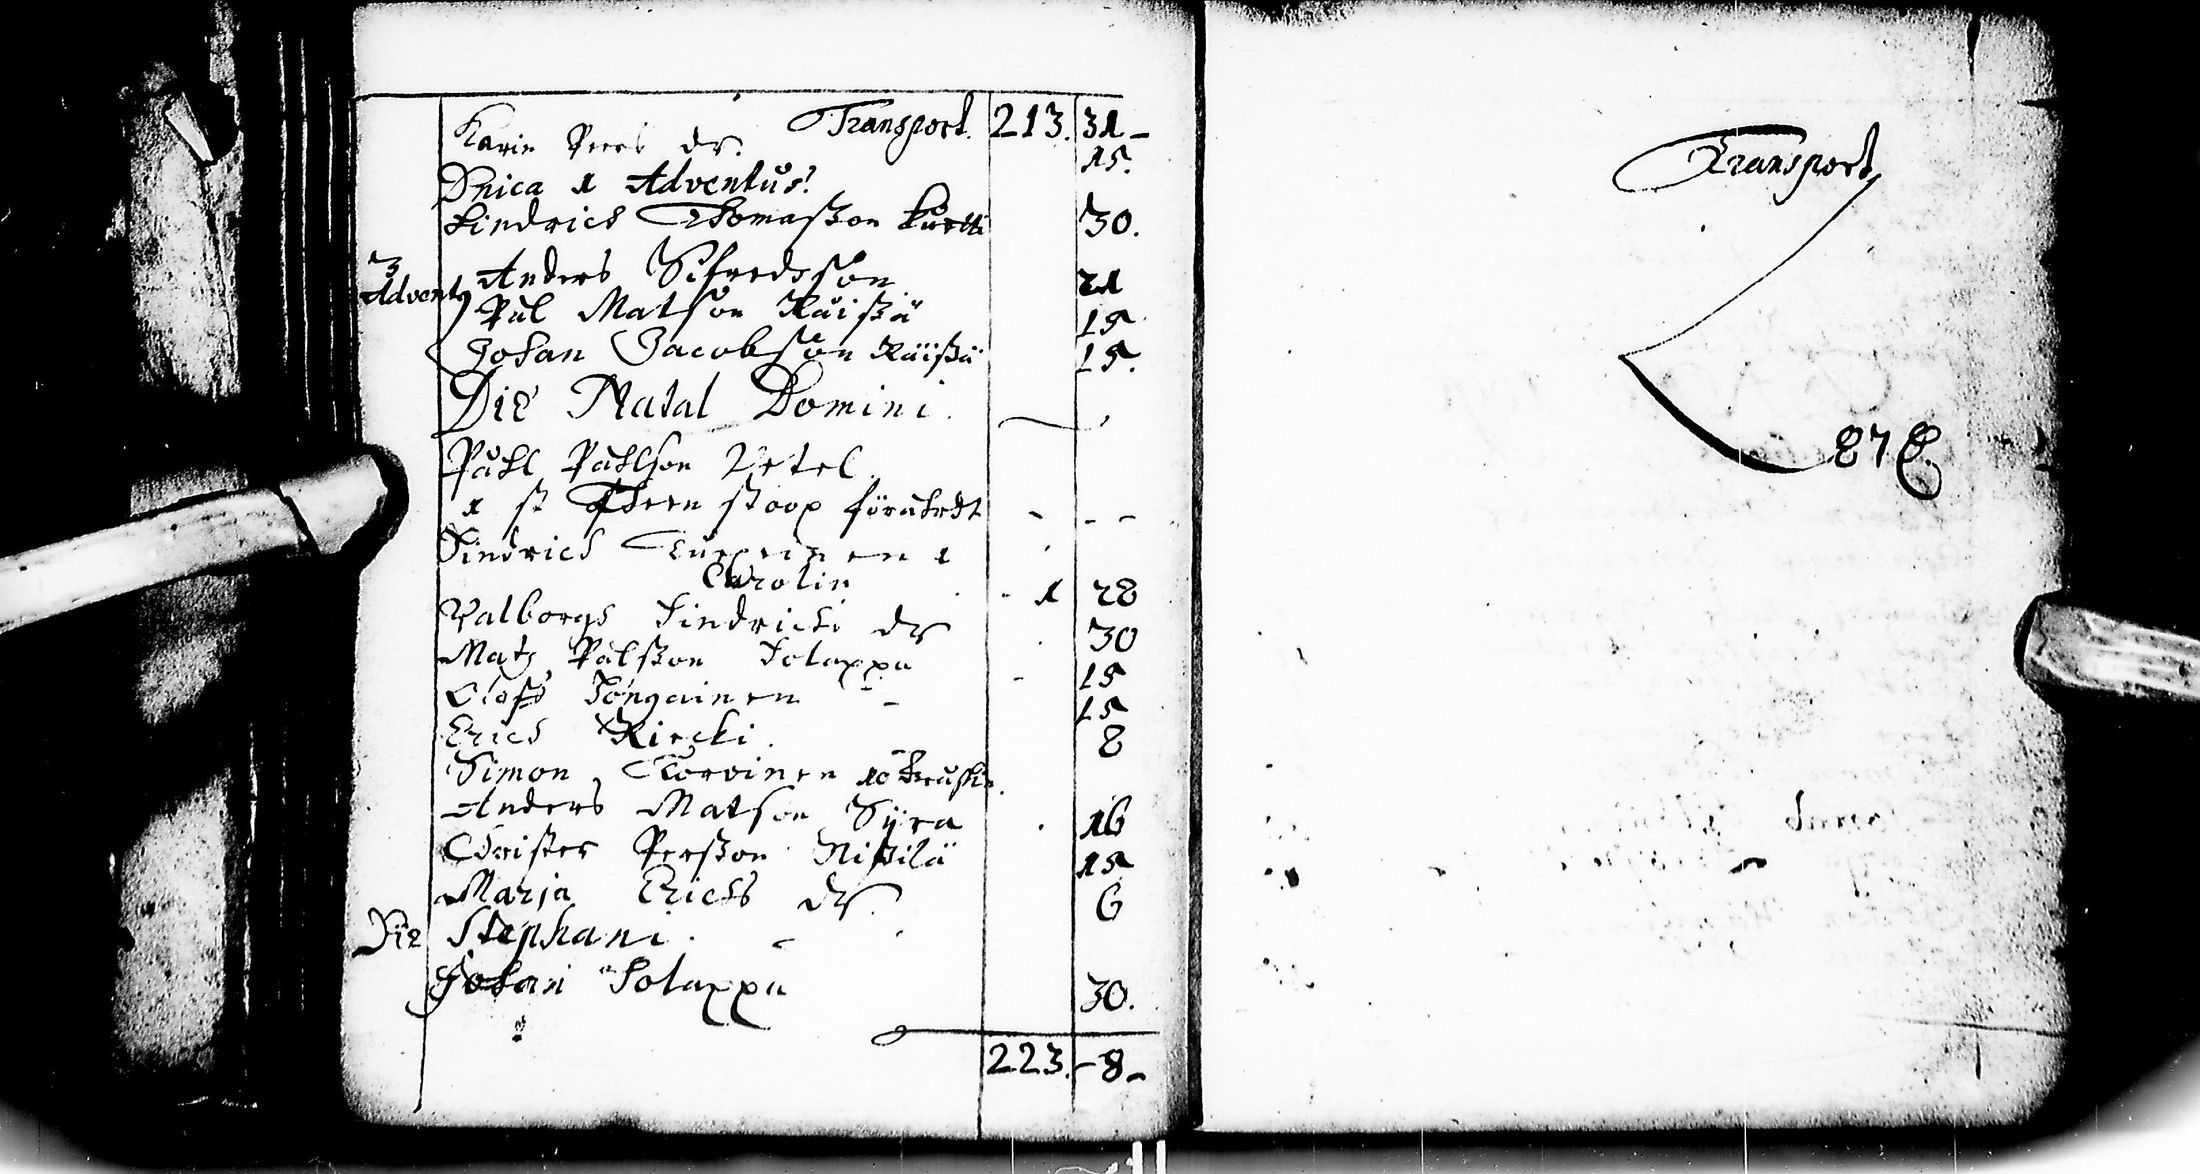 Transport 213. 31 -
Karin Peers dr. 15.
Dnica 1 Adventus!
Hindrich Thomaßon Kurtti 30.
3 Advent9 Anders Sifredsson 21
Pål Matson Räißä 15
Johan Jacobson Räißä 15.
Die Natal Domini.
Påhl Påhlson Vetel.
1 st Theen stoop förährdt - - -
Hindrich Turpeinen 1
Carolin - 1 28
Valborgs Hindrichi dr 30
Matz Pålßon Holappa 15
Oloff Köngäinen - 15
Erich Kiecki. 8
Simon Torvinen 10
Anders Matson Syra 16
Christer Perßon Nißilä 15
Marja Erichs dr. 6
Die Stephani.
Johan Holappa 30.
223. - 8 -
Transport
878.